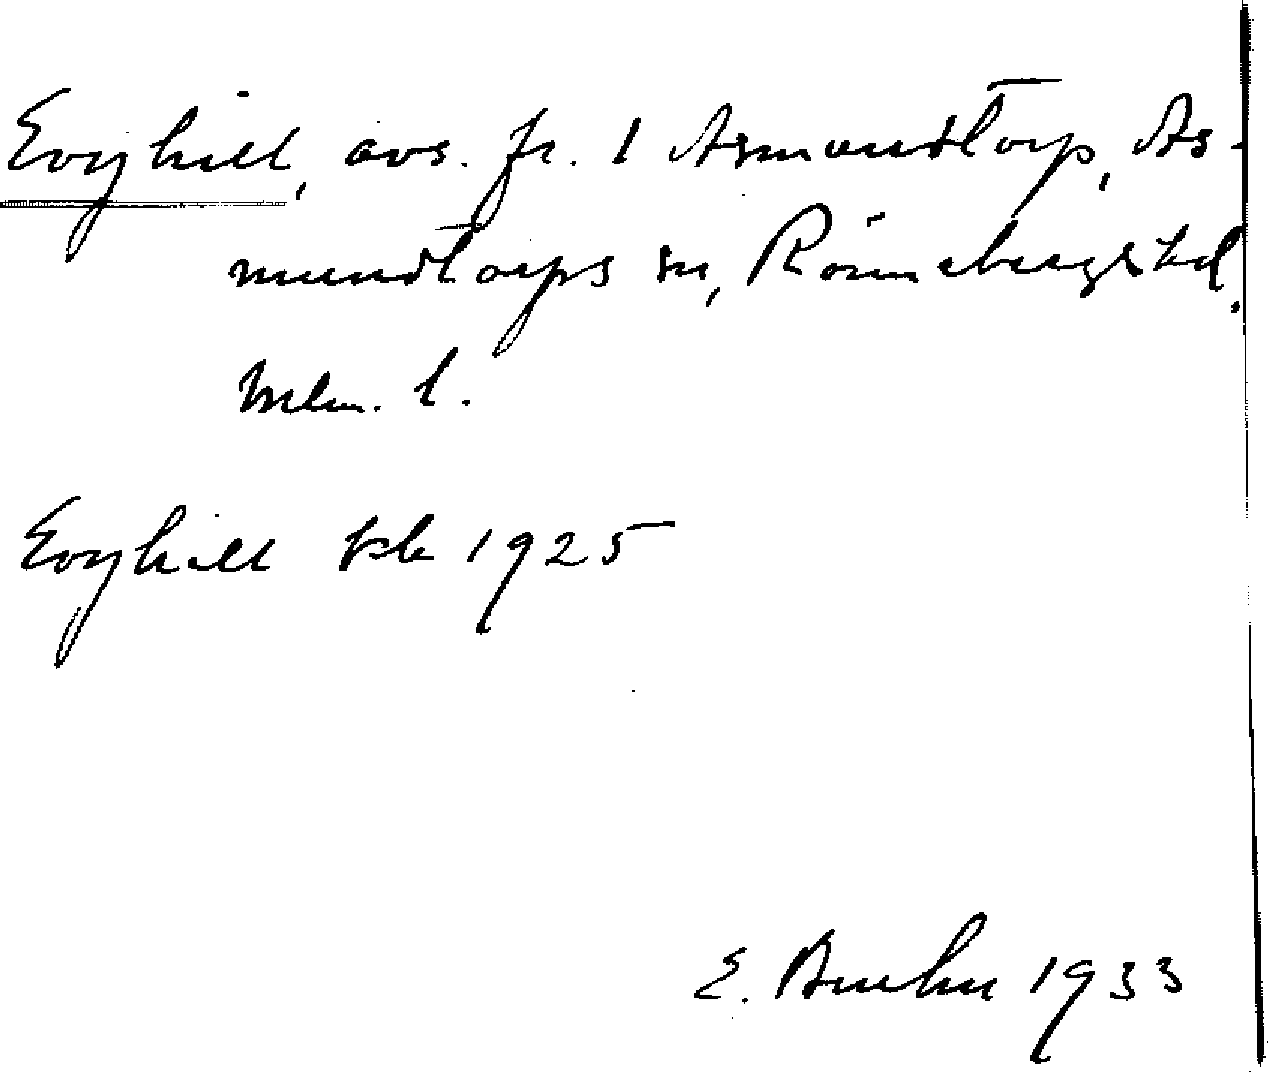 Evyhill, avs. fr. 1 Asmundtorp, As-
mundtorps sn, Rönnebergs hd.
Mlm. l.
Evyhill kb 1925
E. 1933